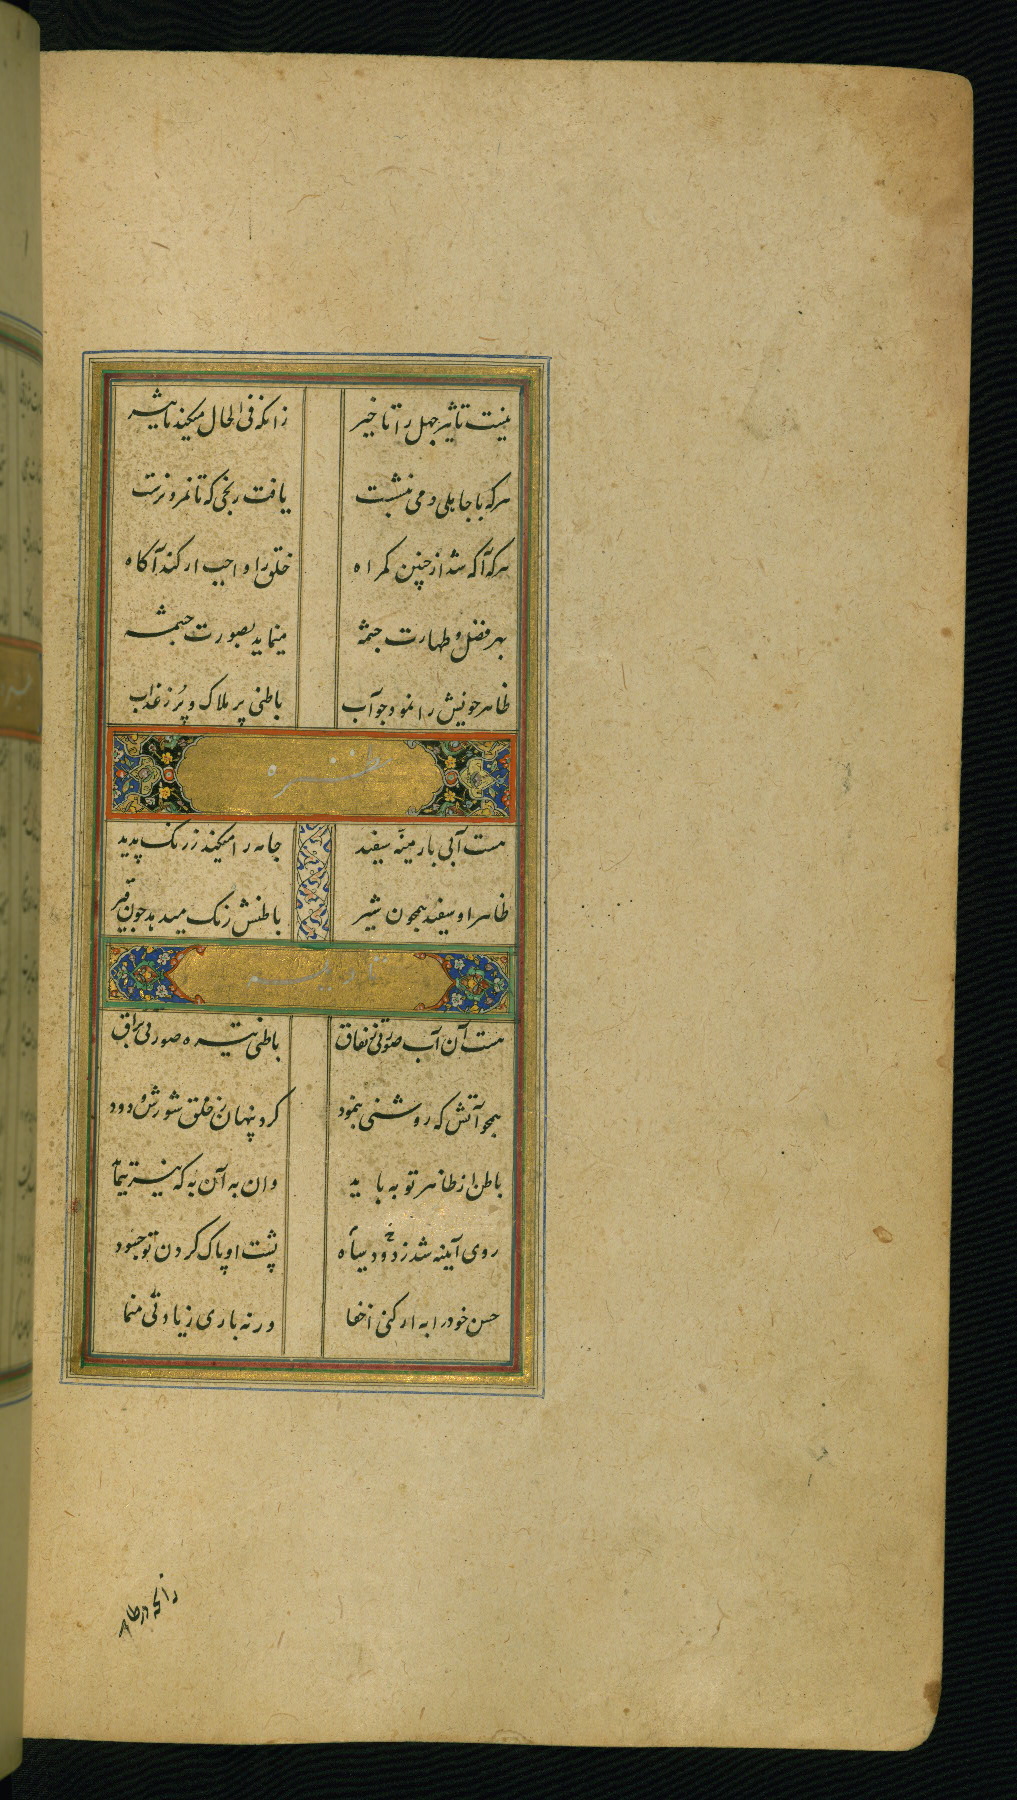 نیست تاثیر جهل را تاخیر زانکه فی الحال میکند تاثیر
هرکه با جاهلی دمی بنشست یافت رنجی که تا نمرد نرست
هرکه آگه شد از چنین کمراه خلق را واجب ار کند آگاه
بهر فضل و طهارت جیم مینماید بصورت
ظاهر خویش را نمود جو آب باطنی پر هلاک و پر ز عذاب
نظیره
هست آبی بارمینه سفید جامه را میکند ز رنگ پدید
ظاهر او سفید همچون شیر باطنش رنگ میدهد جون قیر
تادیب
هست آن آب صورتی ز نفاق باطنی تیره صورتی براق
همجو آتش که روشنی بنمود کرد پنهان ز خلق شورش و دود
باطن از ظاهر تو به باید وان به آن به که نیز ننماید
روی آیینه شد ز دود سیاه پشت او پاک کردن تو جسود
حسن خود را به ار کنی اخفا ورنه باری زیادتی منما
زانکه در ظاهر